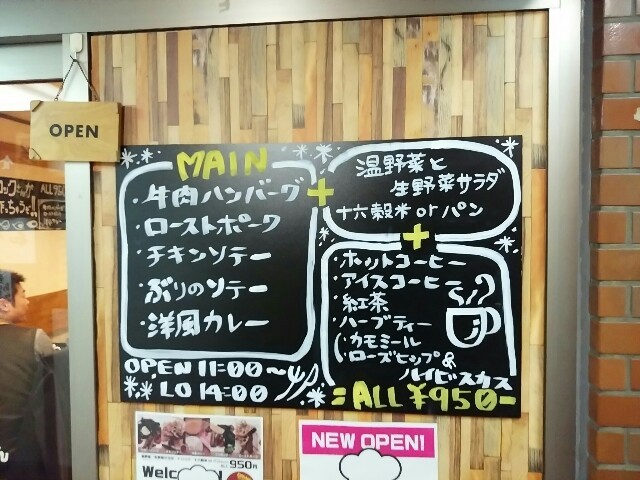 OPEN
MAIN
・牛肉ハンバーグ
・ローストポーク
・チキンソテー
・ぶりのソテー
・洋風カレー
OPEN 11:00~
LO 14:00
+
温野菜と
生野菜サラダ
十六穀米 or パン
+
・ホットコーヒー
・アイスコーヒー
・紅茶
・ハーブティー
(カモミール
ローズヒップ&
ハイビスカス
=ALL ¥950-
950円
Welcome
NEW OPEN!